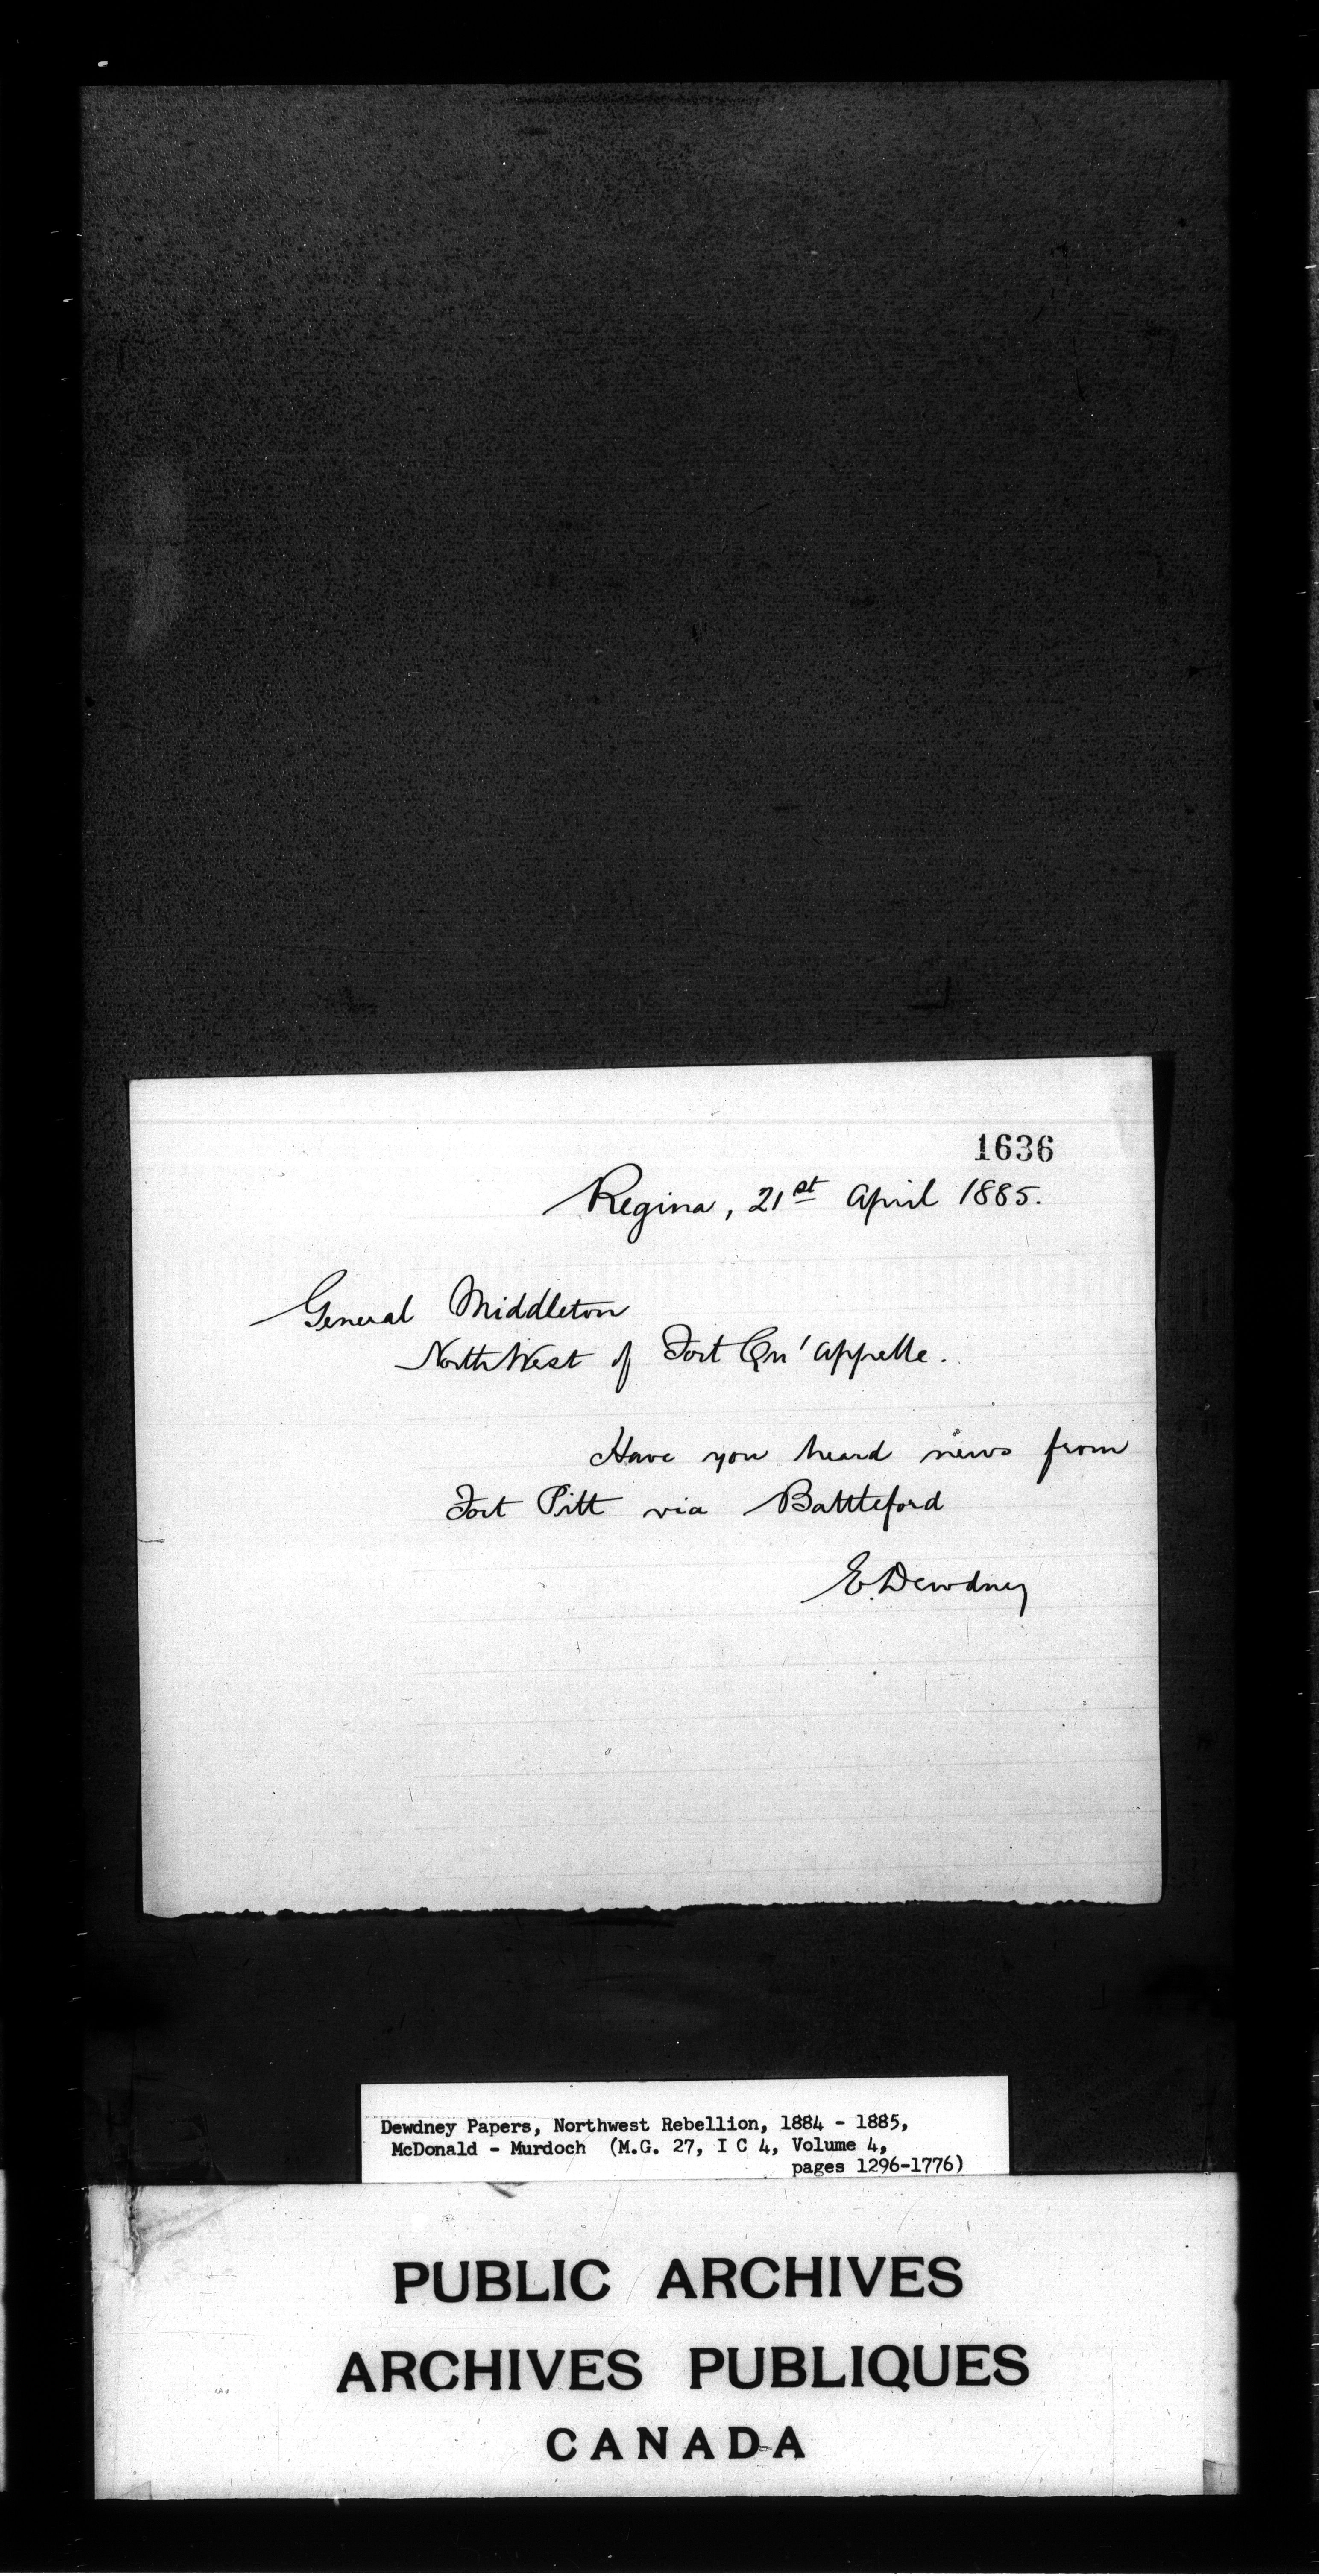 1636
Regina, 21st April 1885.
General Middleton
North West of Fort Qu'appelle.
Have you heard news from
Fort Pitt via Battleford
E. Dewdney
Dewdney Papers, Northwest Rebellion, 1884 - 1885,
McDonald - Murdoch (M.G. 27, I C 4, Volume 4,
pages 1296-1776)
PUBLIC ARCHIVES
ARCHIVES PUBLIQUES
CANADA